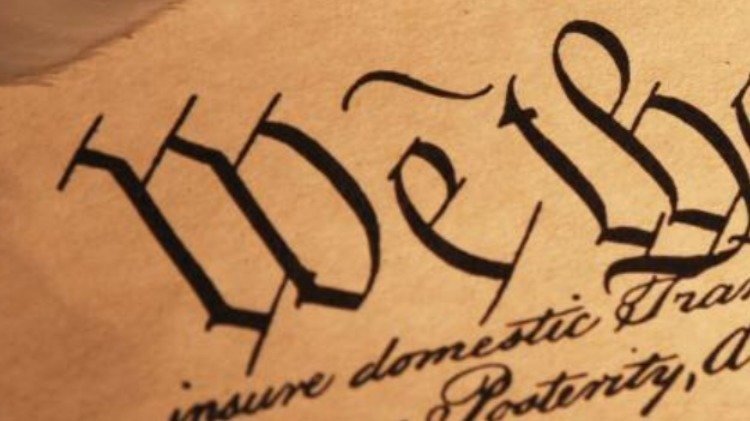 We th
insure domestic Tran
Posterity,